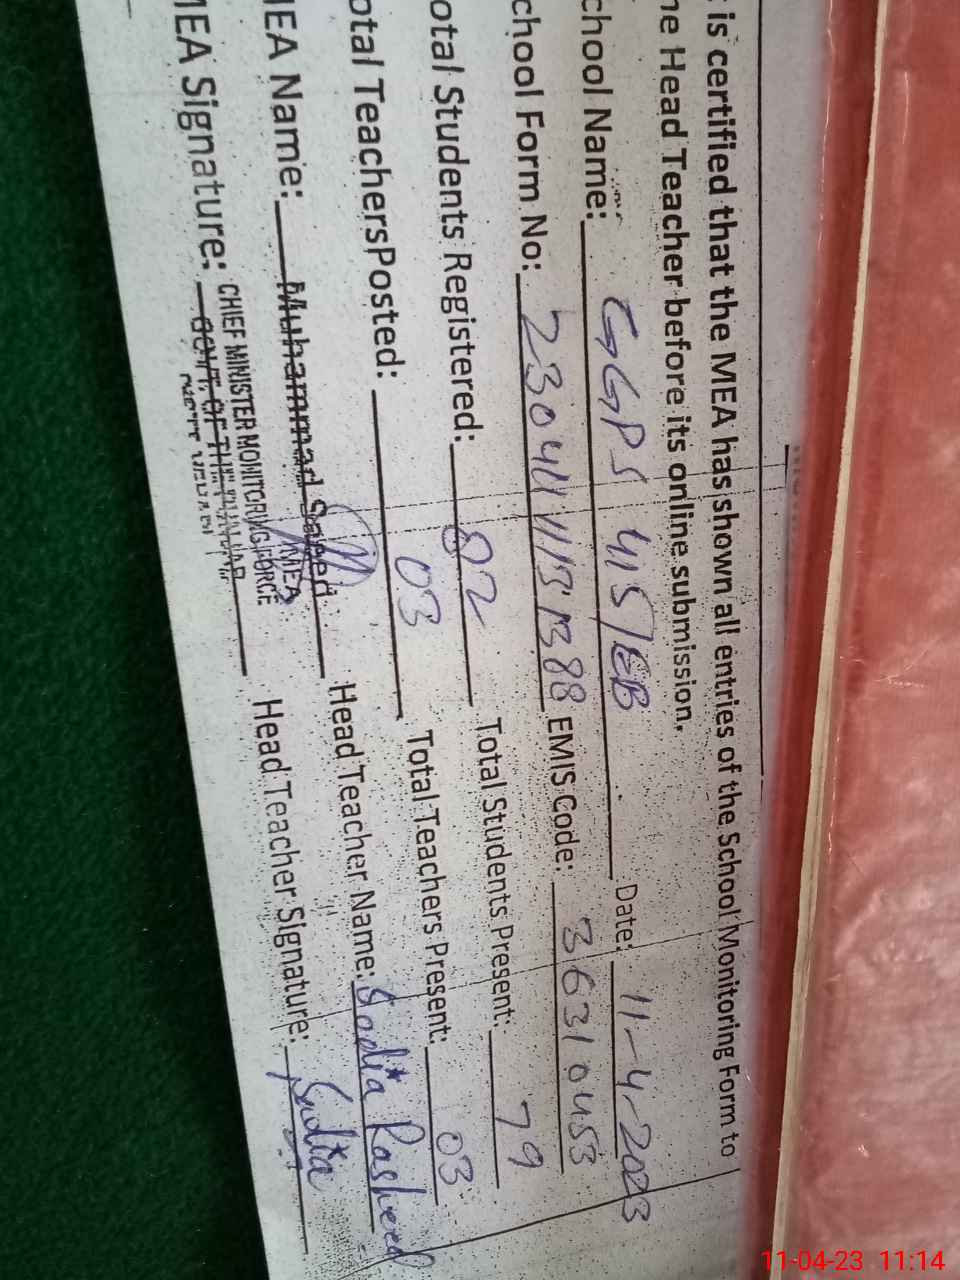 is certified that the MEA has shown all entries of the School Monitoring Form to
he Head Teacher before its online submission.
chool Name: GGPS 415/EB Date: 11-4-2023
chool Form No: EMIS Code: 36310453
otal Students Registered: 82 Total Students Present: 79
otal TeachersPosted: 03 Total Teachers Present: 03
MEA Name: Muhammad Saeed Head Teacher Name: Sadia Rasheed
CHIEF MINISTER MONITORING FORCE
MEA
MEA Signature: GOVT. OF THE PUNJAB Head Teacher Signature: Sadia
11-04-23 11:14